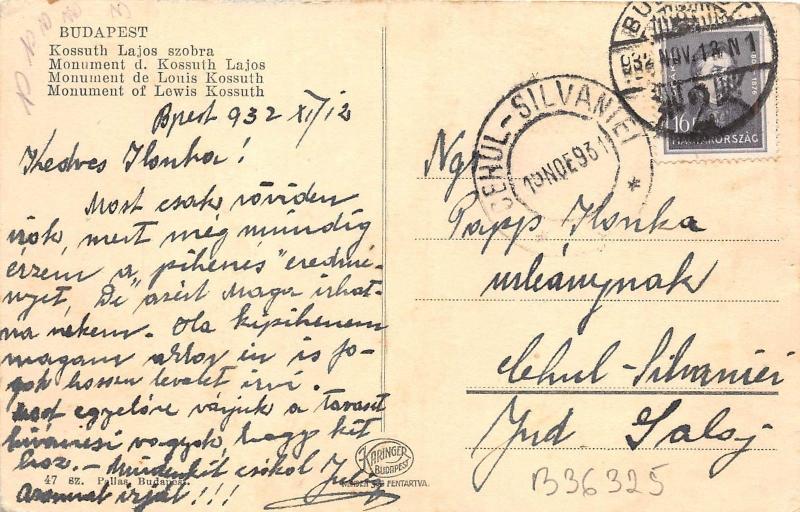 BUDAPEST
Kossuth Lajos szobra
Monument d. Kossuth Lajos
Monument de Louis Kossuth
Monument of Lewis Kossuth
Bpest 932 XI/12
Kedves Ilonka!
Most csak röviden
irok, mert még mindig
érzem a "pihenés" eredmé-
nyét, De azért Maga irhat-
na nekem. Ha kipihenem
magam akkor én is fo-
gok hosszu levelet irni.
Most egyelőre várjuk a tavaszt
kiváncsi vagyok, hogy kit
hoz. - Mindenkit csókol
Azonnal irjál!!!
47 sz. Pallas, Budapest.
KARINGER
BUDAPEST
MINDEN JOG FENTARTVA.
932 NOV. 13 N1
16
MAGYARORSZÁG
CEHUL-SILVANIEI
Ngs
Papp Ilonka
urleánynak
Cehul-Silvaniei
Jud Salaj
B36325